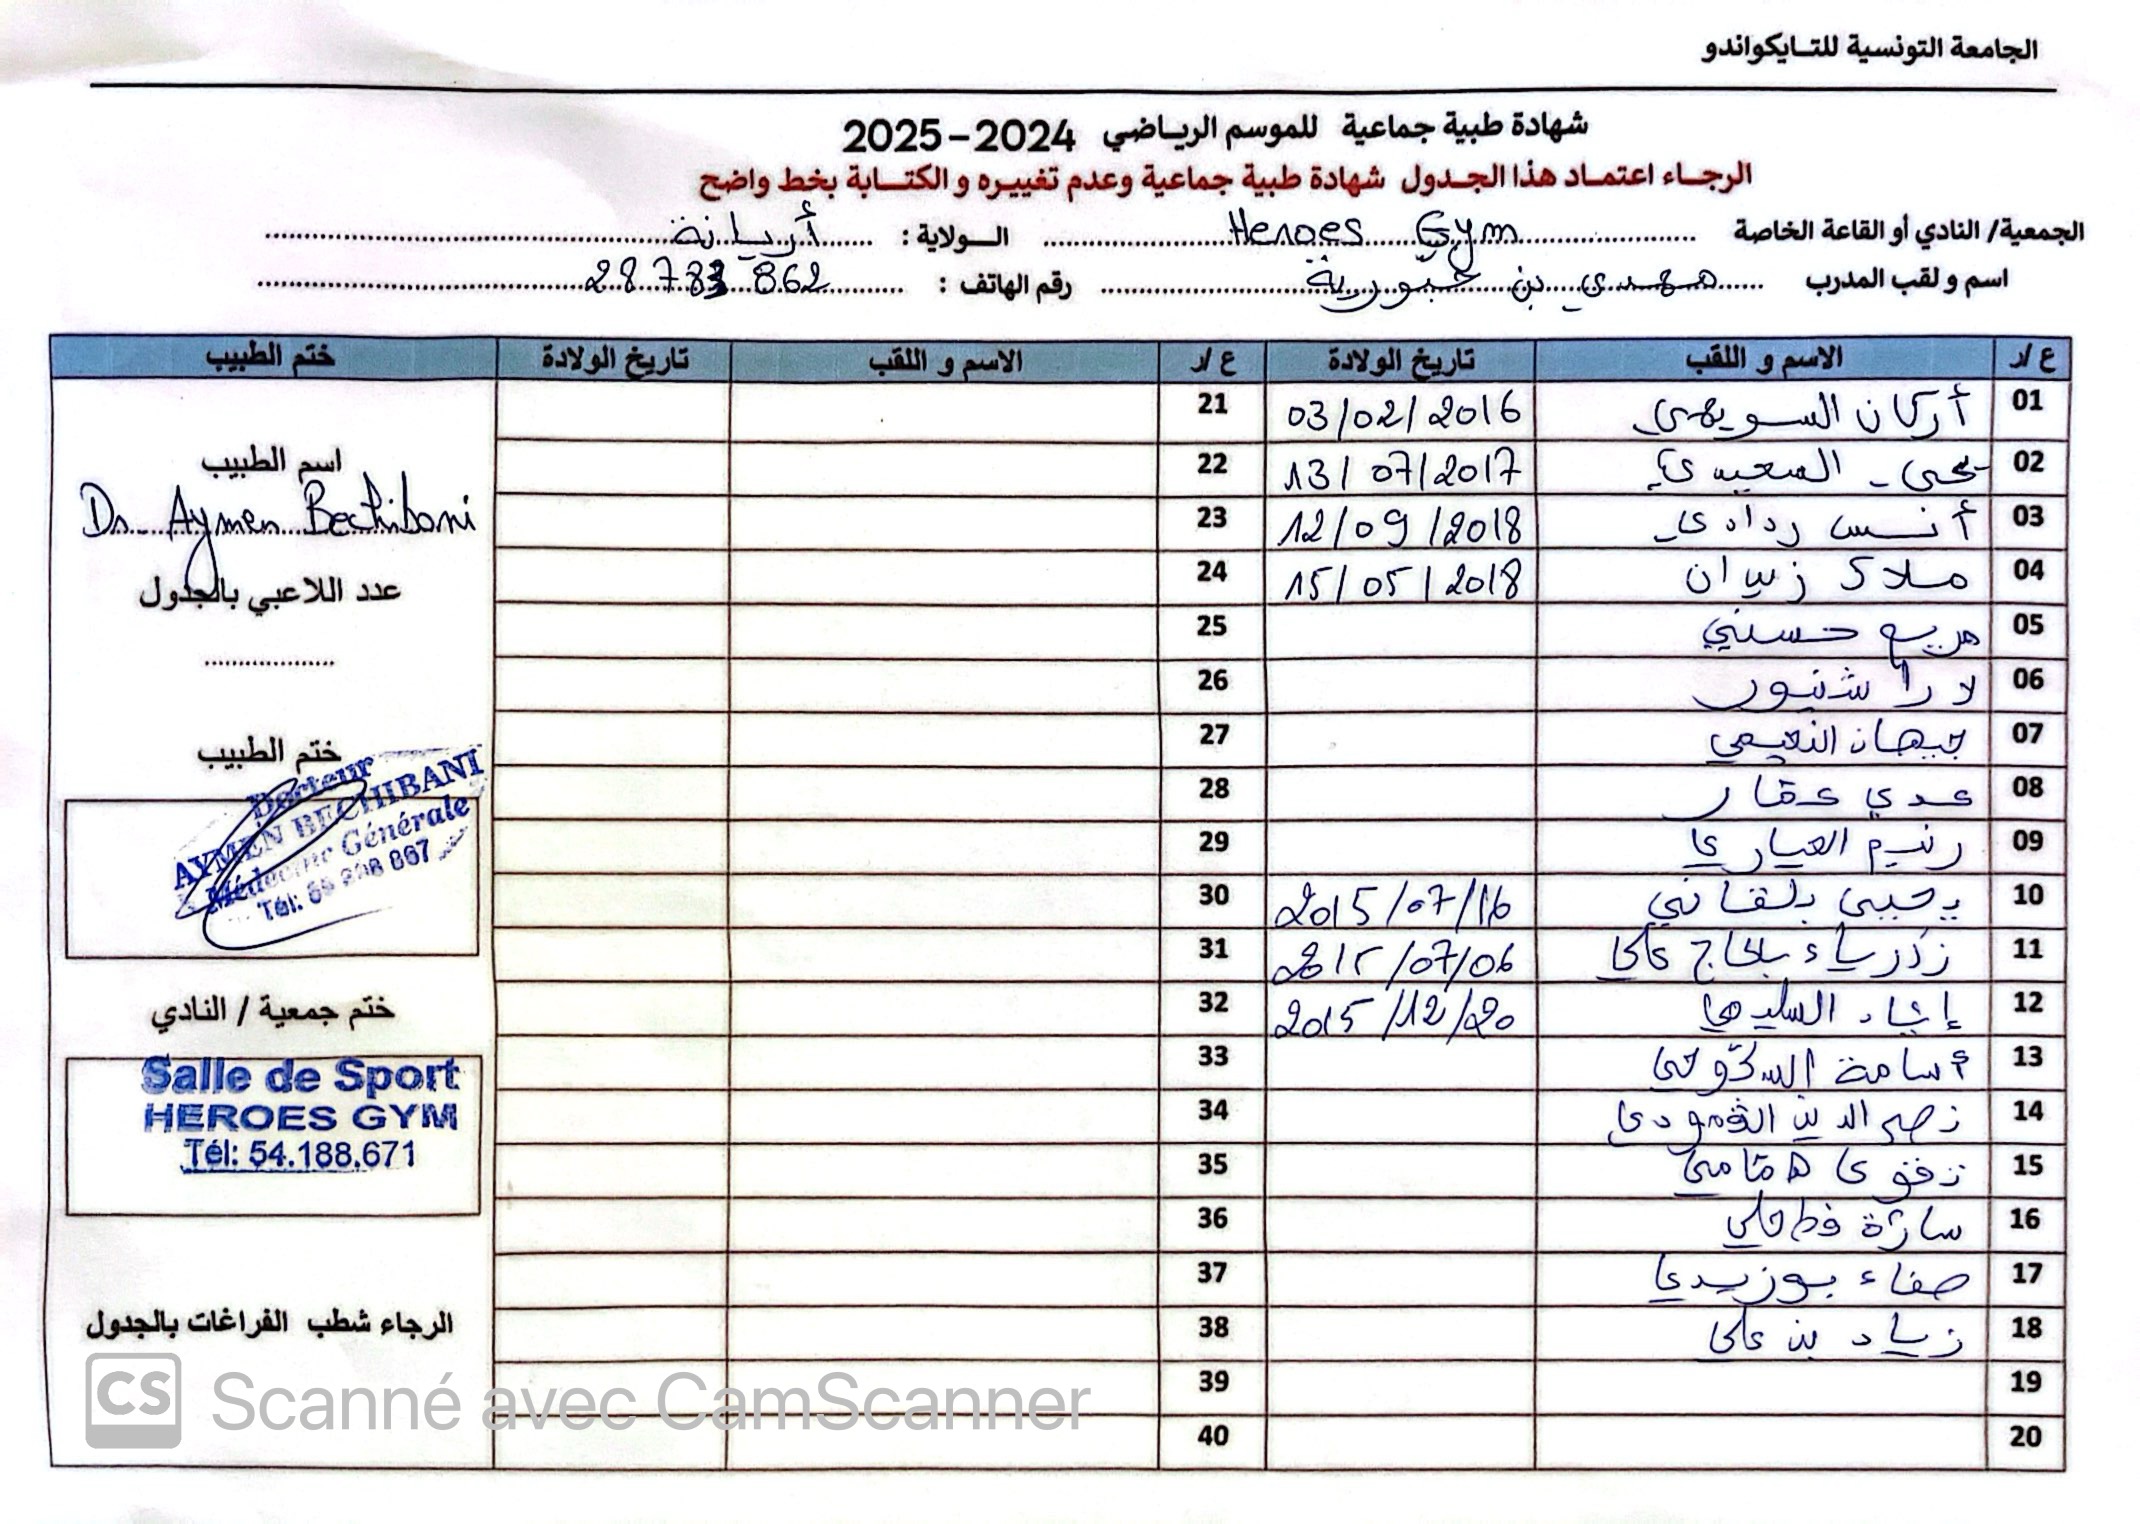 الجامعة التونسية للتايكواندو
شهادة طبية جماعية للموسم الرياضي 2024-2025
الرجاء اعتماد هذا الجدول شهادة طبية جماعية وعدم تغييره و الكتابة بخط واضح
الجمعية/ النادي أو القاعة الخاصة Heroes Gym الولاية : أريانة
اسم و لقب المدرب مهدي بن حبورية رقم الهاتف : 28 783 862
ع/ر الاسم و اللقب تاريخ الولادة ع/ر الاسم و اللقب تاريخ الولادة ختم الطبيب
01 أركان السويهي 03/02/2016 21
02 يحي السعيدي 13/07/2017 22
03 أنس ردادي 12/09/2018 23
04 ملاك زيدان 15/05/2018 24
05 مريم حسني 25
06 لارا شنيور 26
07 جيهان النعيمي 27
08 عدي عمار 28
09 رنيم العياري 29
10 يحيى بلقاني 2015/07/16 30
11 زكرياء بلحاج علي 2015/07/06 31
12 إياد السليمي 2015/12/20 32
13 أسامة السكوحي 33
14 نصر الدين القمودي 34
15 تقوى همامي 35
16 سارة 36
17 صفاء بوزيدي 37
18 زياد بن علي 38
19 39
20 40
اسم الطبيب
Dr Aymen Bechibani
عدد اللاعبي بالجدول
ختم الطبيب
Docteur
AYMEN BECHIBANI
Médecine Générale
Tél:
ختم جمعية / النادي
Salle de Sport
HEROES GYM
Tél: 54.188.671
الرجاء شطب الفراغات بالجدول
CS Scanné avec CamScanner